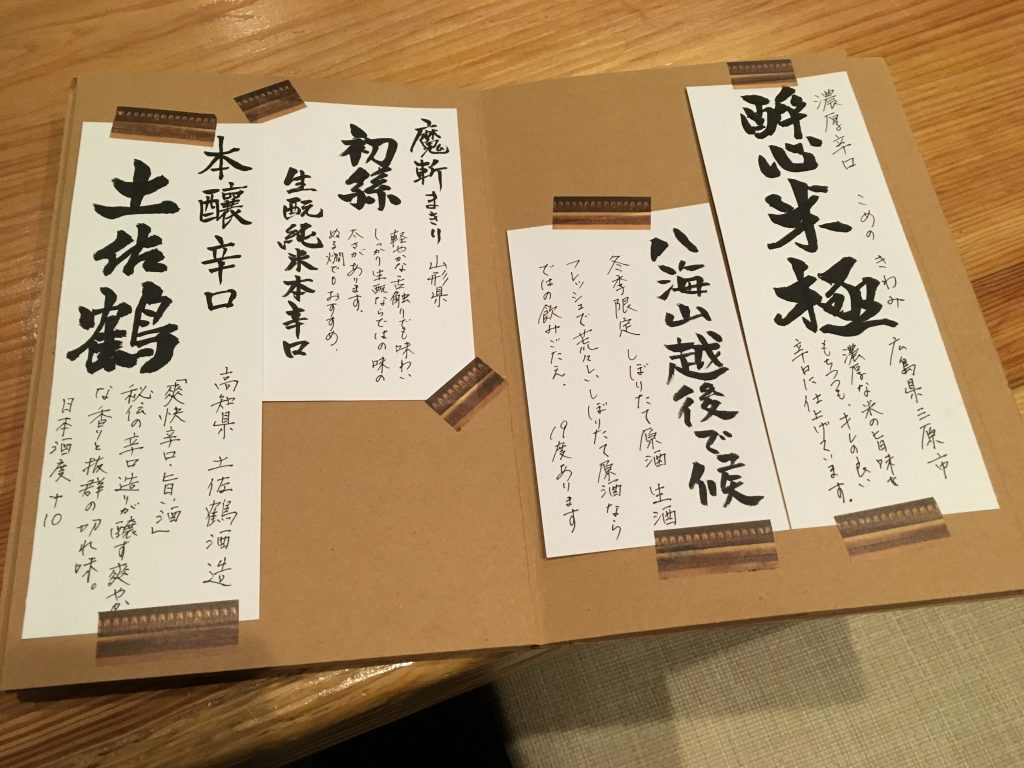 濃厚辛口
酔心米極
こめの きわみ
広島県三原市
濃厚な米の旨味を
もちつつも、キレの良い
辛口に仕上げています。
八海山越後で候
冬季限定 しぼりたて原酒 生酒
フレッシュで荒々しい、しぼりたて原酒なら
ではの飲みごたえ。 19度あります
魔斬まきり 山形県
初孫
生酛純米本辛口
軽やかな舌触りでも味わい
しっかり生酛ならではの味の
太さがあります。
ぬる燗でもおすすめ。
本醸辛口
土佐鶴
高知県 土佐鶴酒造
「爽快辛口・旨い酒」
秘伝の辛口造りが醸す爽やか
な香りと抜群の切れ味。
日本酒度 +10